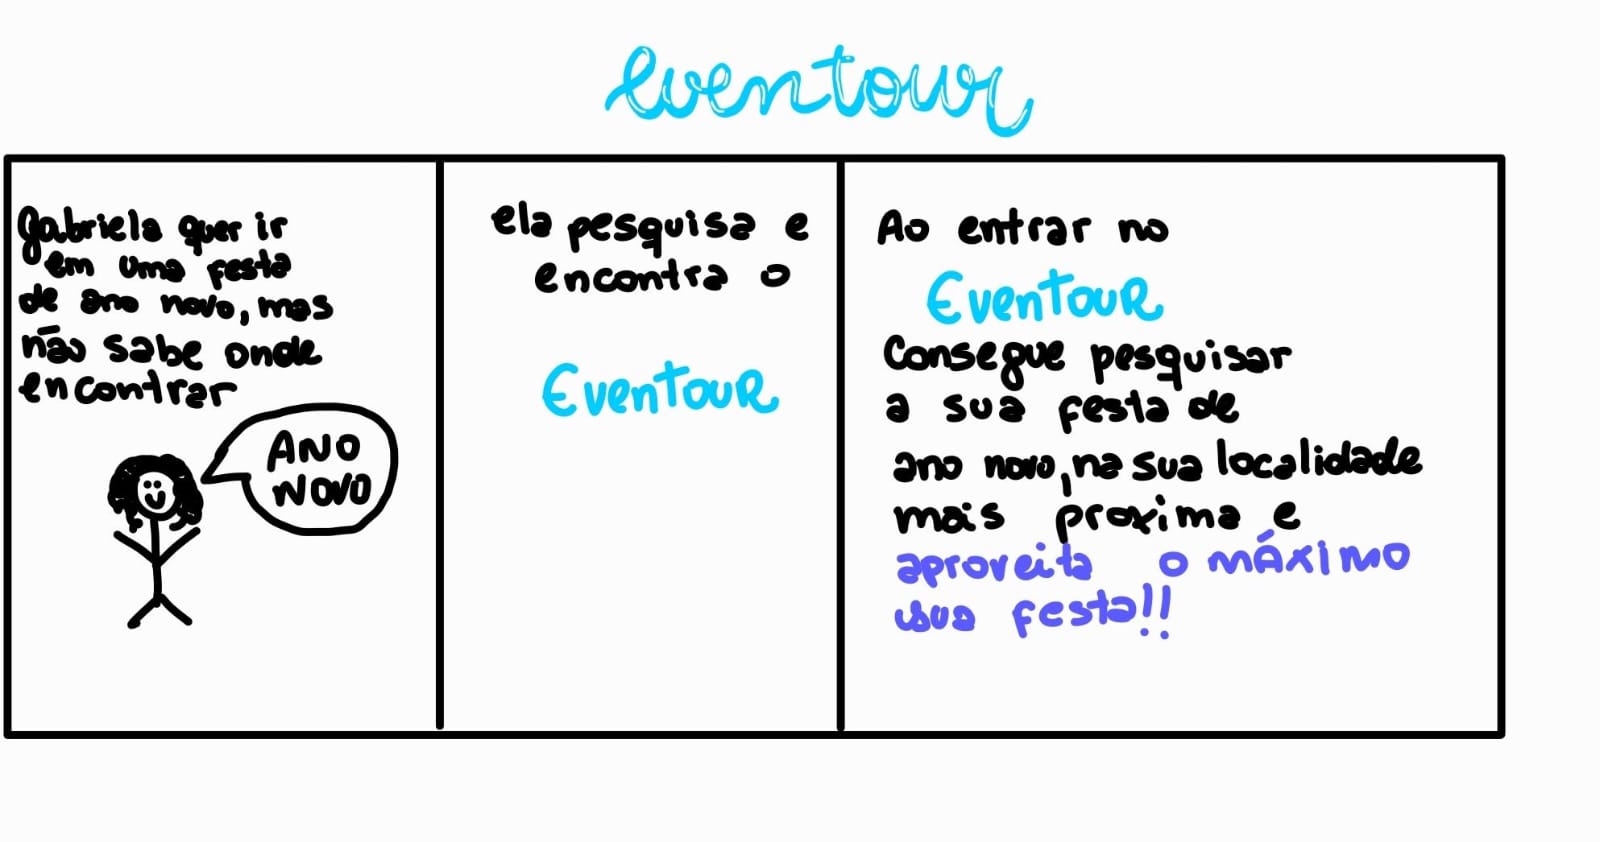 eventour
Gabriela quer ir
em uma festa
de ano novo, mas
não sabe onde
encontrar
ANO
NOVO
ela pesquisa e
encontra o
EvenTouR
Ao entrar no
EvenTouR
Consegue pesquisar
a sua festa de
ano novo, na sua localidade
mais proxima e
aproveita o MÁXIMO
sua festa!!